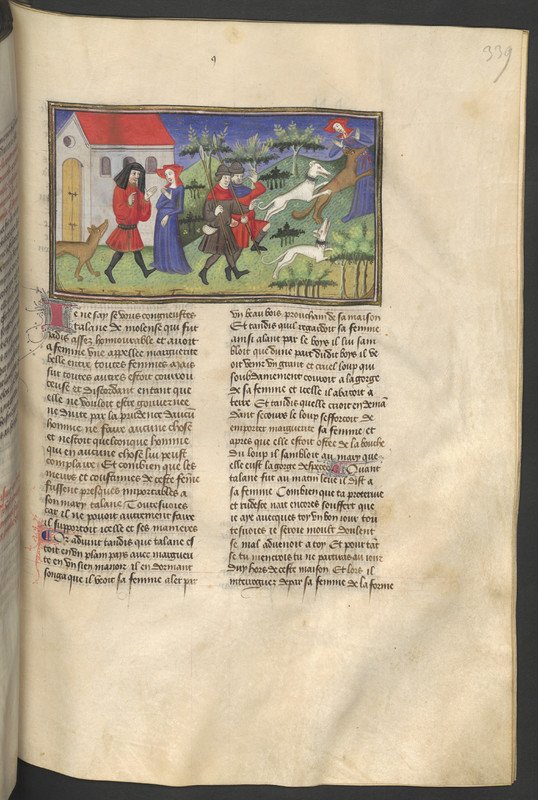 339
Je ne say se vous congneustes
talane de molense qui fut
jadis assez honnourable et avoit
a femme une appellee marguerite
belle entre toutes femmes mais
sur toutes autres estoit
et discordant entant que
elle ne vouloit estre gouvernee
ne duite par la prudence daucun
homme ne faire aucune chose
et nestoit quelconque homme
qui en aucune chose lui peust
complaire Et combien que les
meurs et coustumes de ceste feme
fussent presques importables a
son mary talane Toutesvoies
car il ne povoit autrement faire
il supportoit icelle et ses manieres
Or advint tandis que talane es
toit en un plain pays avec marguerı
te en un sien manoir il en dormant
songa que il veoit sa femme aler par
un beau bois prouchain de sa maison
Et tandis quil regardoit sa femme
ainsi alant par le boys il lui sam
bloit que dune part dudit boys il ve
oit venir un grant et cruel loup qui
soubdainement couroit a la gorge
de sa femme et icelle il abatoit a
terre Et tandis quelle crioit en deman
dant secours le loup sefforcoit de
emporter marguerite sa femme et
apres que elle estoit ostee de la bouche
du loup il sambloit au mary que
elle eust la gorge Quant
talane fut au matin leve il dist a
sa femme Combien que ta protervite
et rudesse nait encores souffert que
je aye avecques toy un bon jour tou
tesvoies je seroie moult doulent
se mal advenoit a toy Et pour tat
se tu mencrois tu ne partiras au jour
duy hors de ceste maison Et lors il
interroguez depar sa femme de la forme